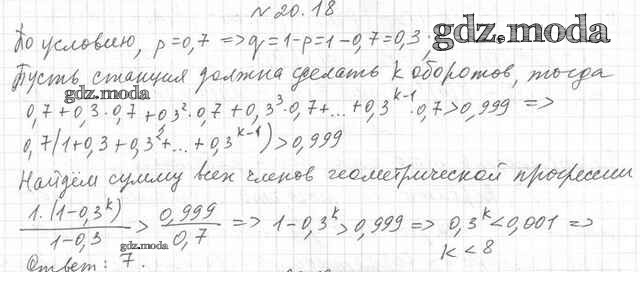 № 20.18
По условию, p=0,7 => q=1-p=1-0,7=0,3;
gdz.moda
Пусть станция должна сделать k оборотов, тогда
gdz.moda
0,7+0,3·0,7+0,3²·0,7+0,3³·0,7+...+0,3^(k-1)·0,7>0,999 =>
0,7(1+0,3+0,3²+...+0,3^(k-1))>0,999
Найдём сумму всех членов геометрической прогрессии
1·(1-0,3^k)/(1-0,3) > 0,999/0,7 => 1-0,3^k>0,999 => 0,3^k<0,001 =>
k<8
gdz.moda
Ответ: 7.